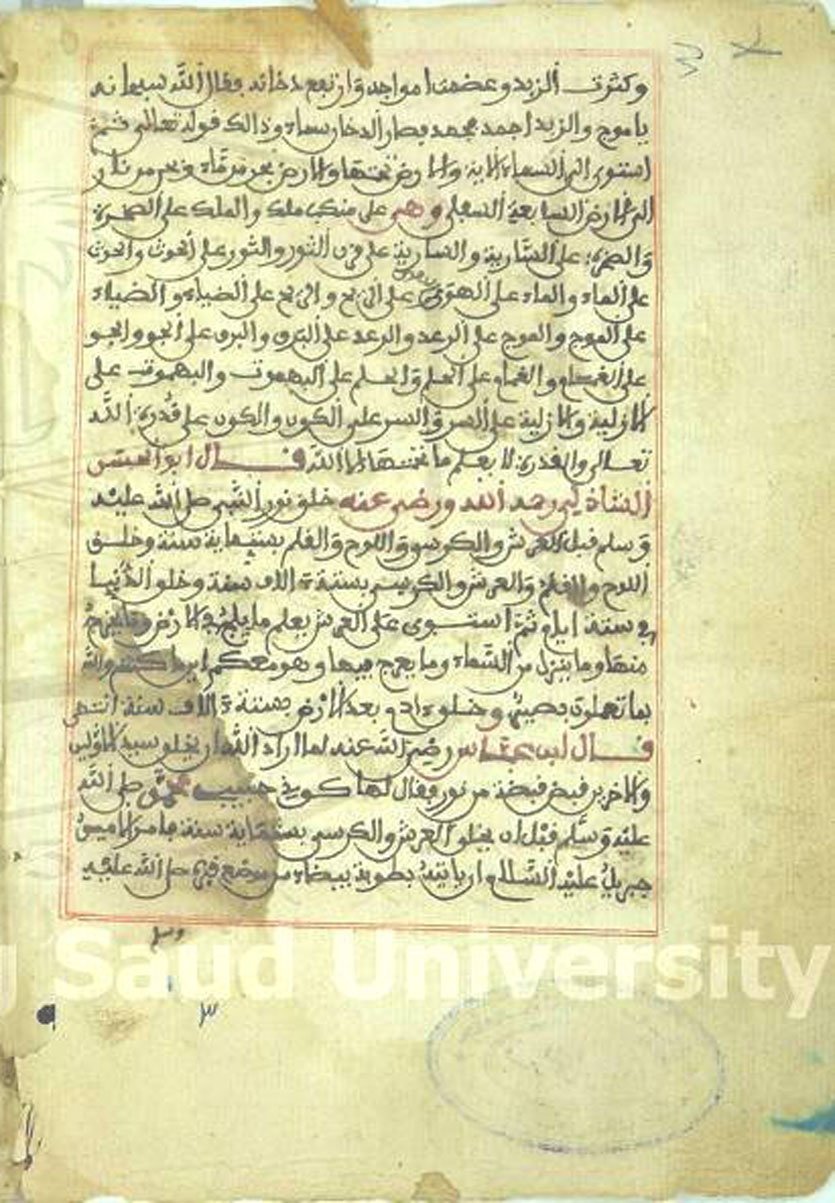 وكثرت الزبد وعضمت امواجه وارتبع دخانه فقال الله سبحانه
يا موج والزبد اجمد فجمد فصار الدخان سماء وذالك قوله تعالى ثم
استوى الى السماء الاية والارض تحتها والارض بحر من ماء وبحر من نار
الى الارض السابعة السفلى وهي على منكب ملك والملك على الصخرة
والصخرة على السارية والسارية على قرن الثور والثور على الحوت والحوت
على الماء والماء على الهوى على الريح والريح على الضياء والضياء
على الموج والموج على الرعد والرعد على البرق والبرق على الجو والجو
على الغمام والغمام على الحلم والحلم على البهموت والبهموت على
الازلية والازلية على السر والسر على الكون والكون على قدرة الله
تعالى والقدرة لا يعلم ما تحتها الا الله قال ابو الحسن
الشاذلي رحمه الله ورضي عنه خلق نور النبي صلى الله عليه
وسلم قبل العرش والكرسي واللوح والقلم بستماية سنة وخلق
اللوح والقلم والعرش والكرسي بستة ءالاف سنة وخلق الدنيا
في ستة ايام ثم استوى على العرش يعلم ما يلج في الارض وما يخرج
منها وما ينزل من السماء وما يعرج فيها وهو معكم اين ما كنتم والله
بما تعملون بصير وخلق ءادم بعد الارض بستة ءالاف سنة انتهى
قال ابن عباس رضي الله عنه لما اراد الله ان يخلق سيد الاولين
والاخرين قبض قبضة من نور فقال لها كوني حبيبي محمد صلى الله
عليه وسلم قبل ان يخلق العرش والكرسي بستماية سنة فامر الامين
جبريل عليه السلام ان ياتيه بطوبة بيضاء من موضع قبره صلى الله عليه
وسلم
٣
King Saud University